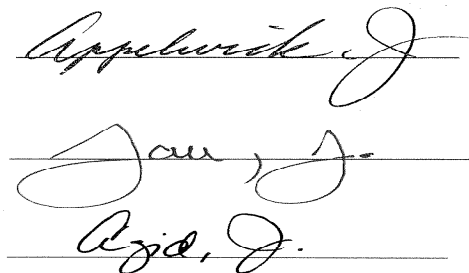 Appelwick, J
Lau, J.
Agid, J.